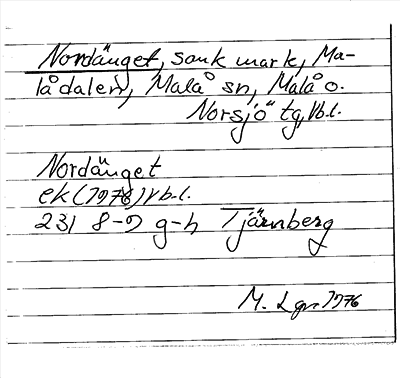 Nordänget, sank mark, Ma-
lådalen, Malå sn, Malå o.
Norsjö tg, Vb.l.
Nordänget
ek (1976) Vb.l.
23I 8-9 g-h Tjärnberg
M. Lgr. 1976